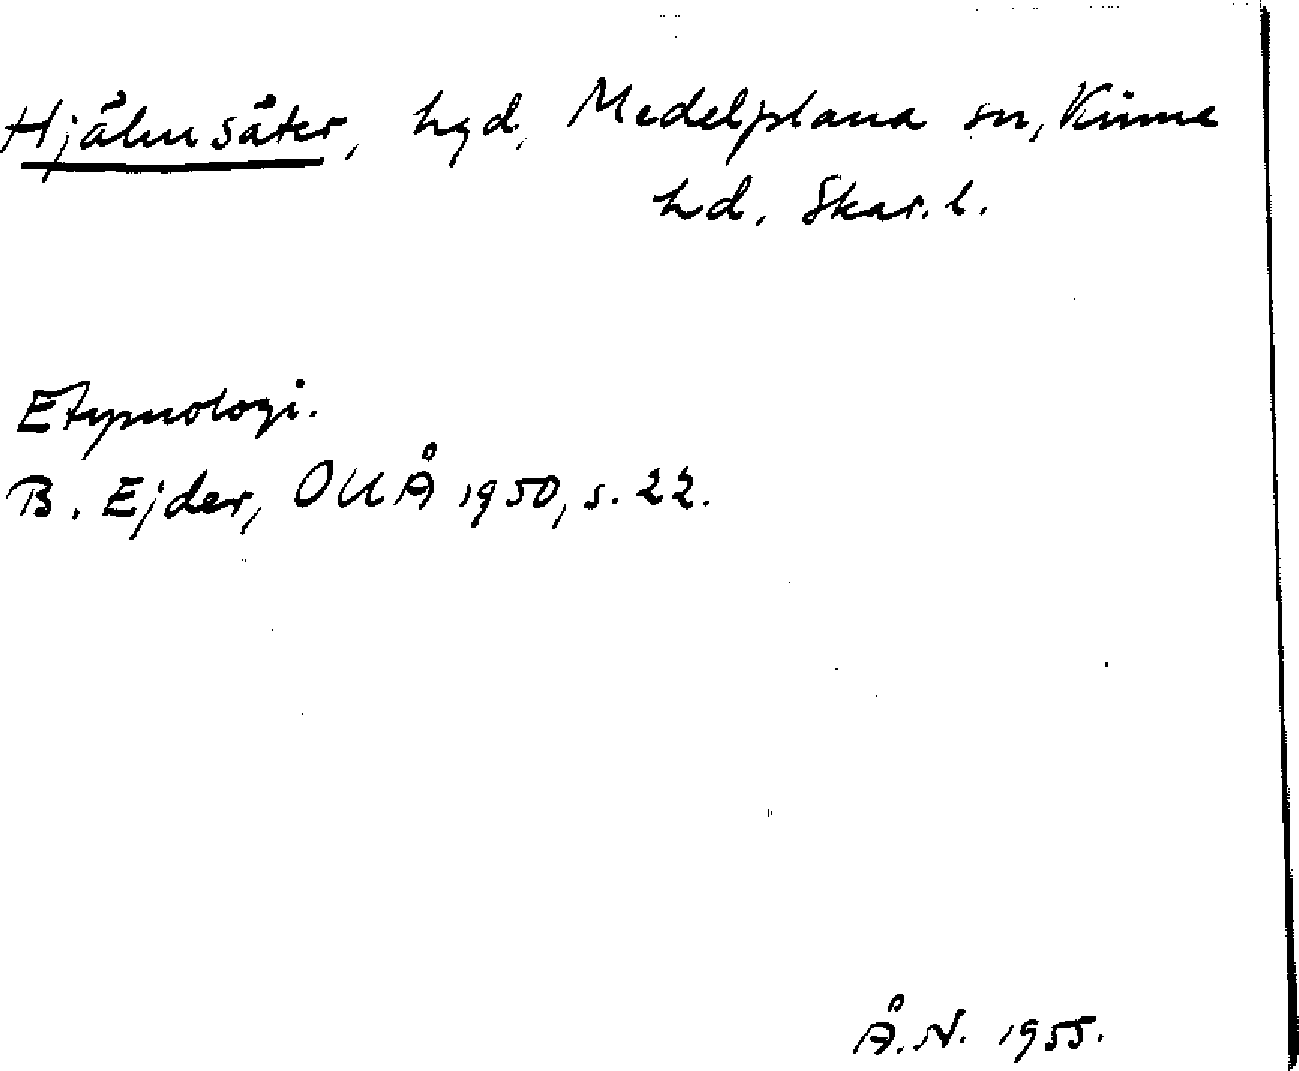 Hjälmsäter, hgd, Medelplana sn, Kinne
hd. Skar. l.
Etymologi.
B. Ejder, OUÅ 1950, s. 22.
Å.N. 1955.